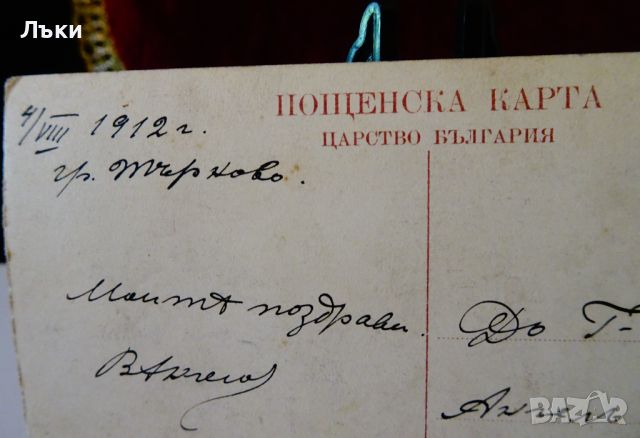 Лъки
ПОЩЕНСКА КАРТА
ЦАРСТВО БЪЛГАРИЯ
4/VIII 1912 г.
гр. Търново.
Моитѣ поздрави.
До Г-
Ангелъ
BAZAR